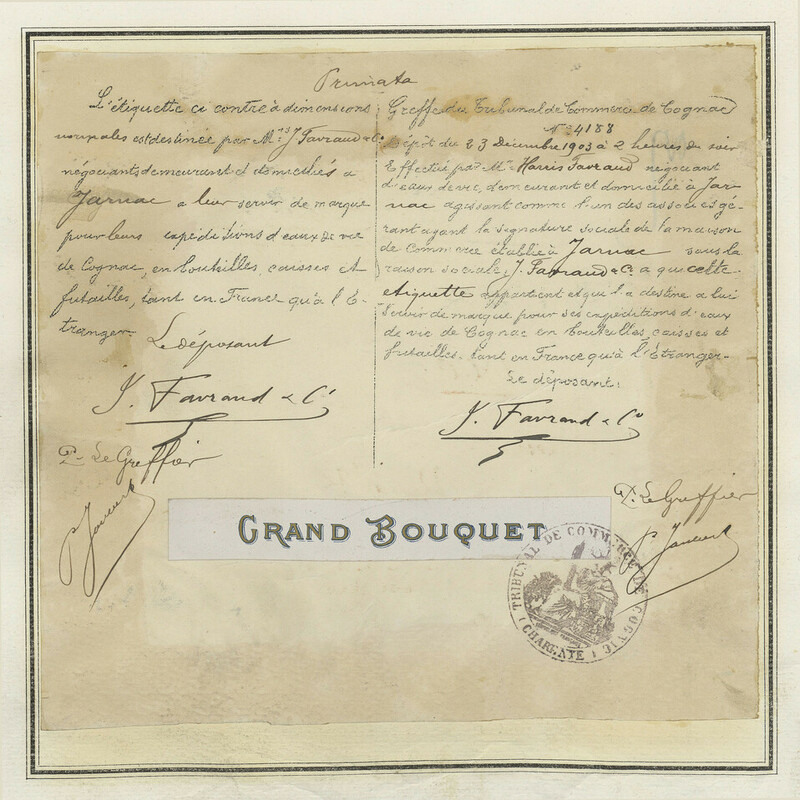 Primata
L'étiquette ci contre à dimensions
est destinée par Mrs J. Favraud & Co
négociants demeurant et domiciliés à
Jarnac a leur servir de marque
pour leurs expéditions d'eaux de vie
de Cognac, en bouteilles, caisses et
futailles, tant en France qu'à l'É-
tranger.
Le déposant
J. Favraud & Co
P. Le Greffier
Greffe du Tribunal de Commerce de Cognac
No 4188
Dépôt du 23 Décembre 1903 à 2 heures du soir
Effectué par Mr Harris Favraud négociant
d'eaux de vie, demeurant et domicilié à Jar-
nac agissant comme l'un des associés gé-
rant ayant la signature sociale de la maison
de Commerce établie à Jarnac sous la
raison sociale J. Favraud & Co a qui cette
etiquette appartient et qui l'a destine a lui
servir de marque pour ses expéditions d'eaux
de vie de Cognac en bouteilles, caisses et
futailles. tant en France qu'à l'Étranger.
Le déposant:
J. Favraud & Co
P. Le Greffier
GRAND BOUQUET
TRIBUNAL DE COMMERCE DE COGNAC
(CHARENTE)